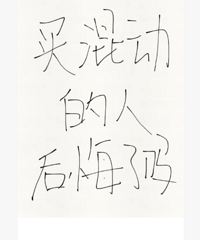 买混动
的人
后悔了吗